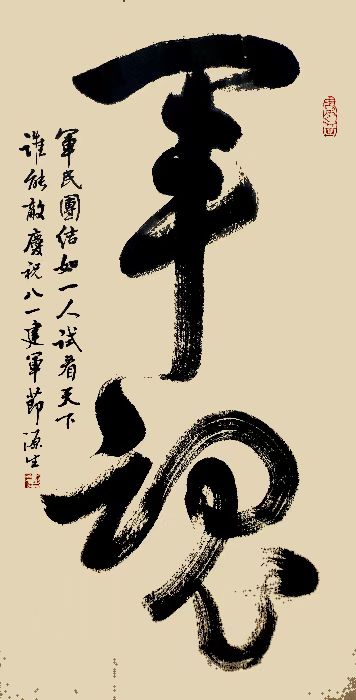 軍魂
軍民團結如一人試看天下
誰能敵慶祝八一建軍節源生